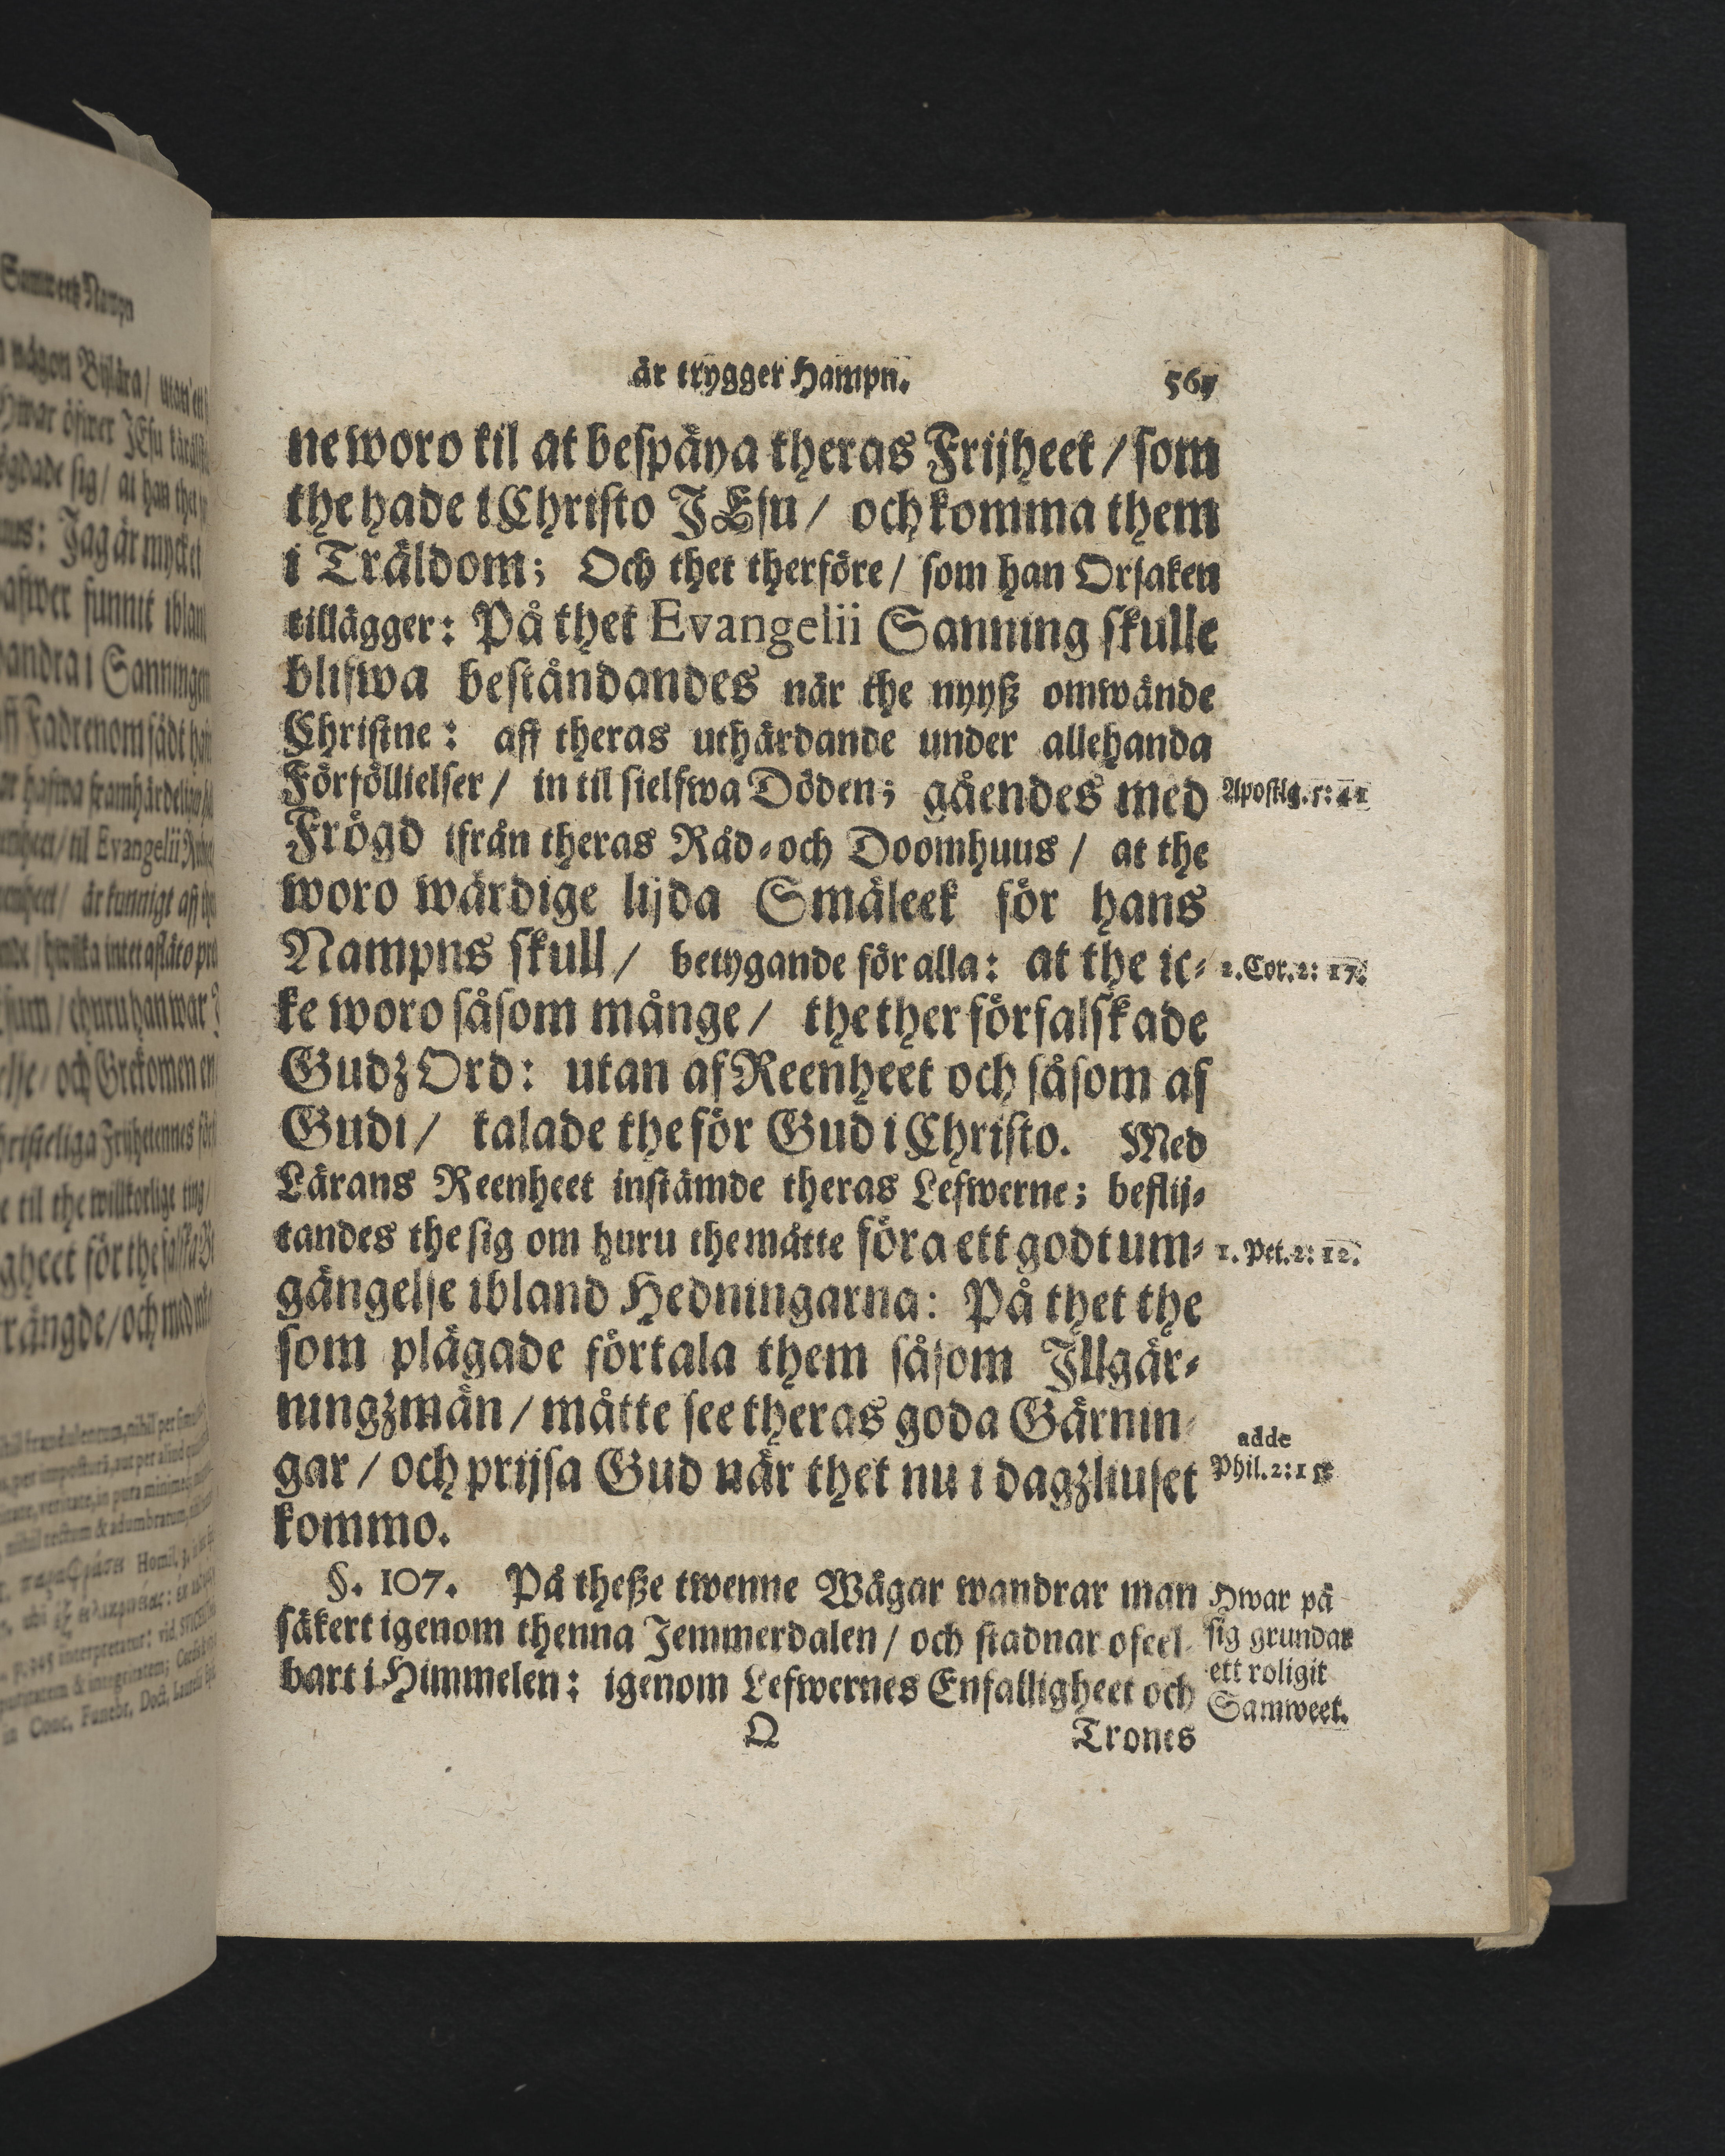 är trygger Hampn.
ne woro til at bespäya theras Frijheet / som
the hade i Christo JEsu / och komma them
i Träldom; Och thet therföre / som han Orsaken
tillägger: På thet Evangelii Sanning skulle
blifwa beståndandes når the nyyß omwände
Christne: aff theras uthärdande under allehanda
Förföllielser / in til sielfwa Döden; gåendes med
Frögd ifrån theras Råd- och Doomhuus / at the
woro wärdige lijda Smäleek för hans
Nampns skull / betygande för alla: at the ic-
ke woro såsom månge / the ther förfalskade
Gudz Ord: utan af Reenheet och såsom af
Gudi / talade the för Gud i Christo. Med
Lärans Reenheet instämde theras Lefwerne; beflij-
tandes the sig om huru the måtte föra ett godt um-
gängelse ibland Hedningarna: På thet the
som plägade förtala them såsom Illgär-
ningzmän / måtte see theras goda Gärnin-
gar / och prijsa Gud når thet nu i dagzliuset
kommo.
§. 107. På theße twenne Wågar wandrar man
säkert igenom thenna Jemmerdalen / och stadnar ofeel-
bart i Himmelen: igenom Lefwernes Enfalligheet och
Q Trones
Apostlg. 5: 41
2. Cor. 2: 17.
1. Pet. 2: 12.
adde
Phil. 2: 15
Hwar på
sig grundar
ett roligit
Samweet.
Samwetz Nampn
någon Bijlära / utan en
Hwar öfwer JEsu
sig / at han thet
Jag är mycket
funnit ibland
andra i Sanningen
Fadrenom
til Evangelii
är kunnigt aff
hwilka intet
huru han war
och Grekomen
til the willkorlige ting
gheet för the falska
rängde / och med